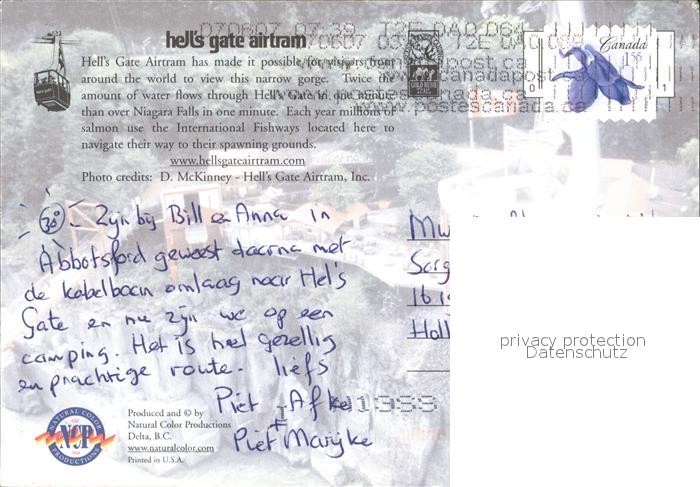 070607 07:38 T2E OAO 064
hell's gate airtram
Hell's Gate Airtram has made it possible for visitors from
around the world to view this narrow gorge. Twice the
amount of water flows through Hell's Gate in one minute
than over Niagara Falls in one minute. Each year millions of
salmon use the International Fishways located here to
navigate their way to their spawning grounds.
www.hellsgateairtram.com
Photo credits: D. McKinney - Hell's Gate Airtram, Inc.
Canada
1.55
www.canadapost.ca
www.postescanada.ca
30°
Zijn bij Bill en Anna in
Abbotsford geweest daarna met
de kabelbaan omlaag naar Hel's
Gate en nu zijn we op een
camping. Het is heel gezellig
en prachtige route. liefs
Piet Afke
+
Piet Marijke
Mw
Hol
privacy protection
Datenschutz
NATURAL COLOR
NCP
PRODUCTIONS
Produced and © by
Natural Color Productions
Delta, B.C.
www.naturalcolor.com
Printed in U.S.A.